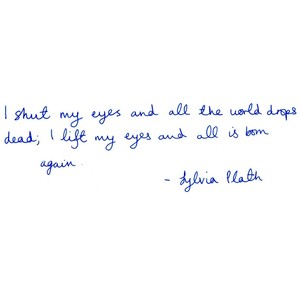 I shut my eyes and all the world drops
dead; I lift my eyes and all is born
again.
- Sylvia Plath